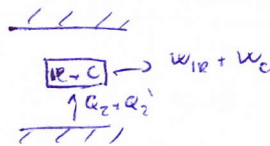 IR + C → W_IR + W_C
↑ Q_2 + Q_2'